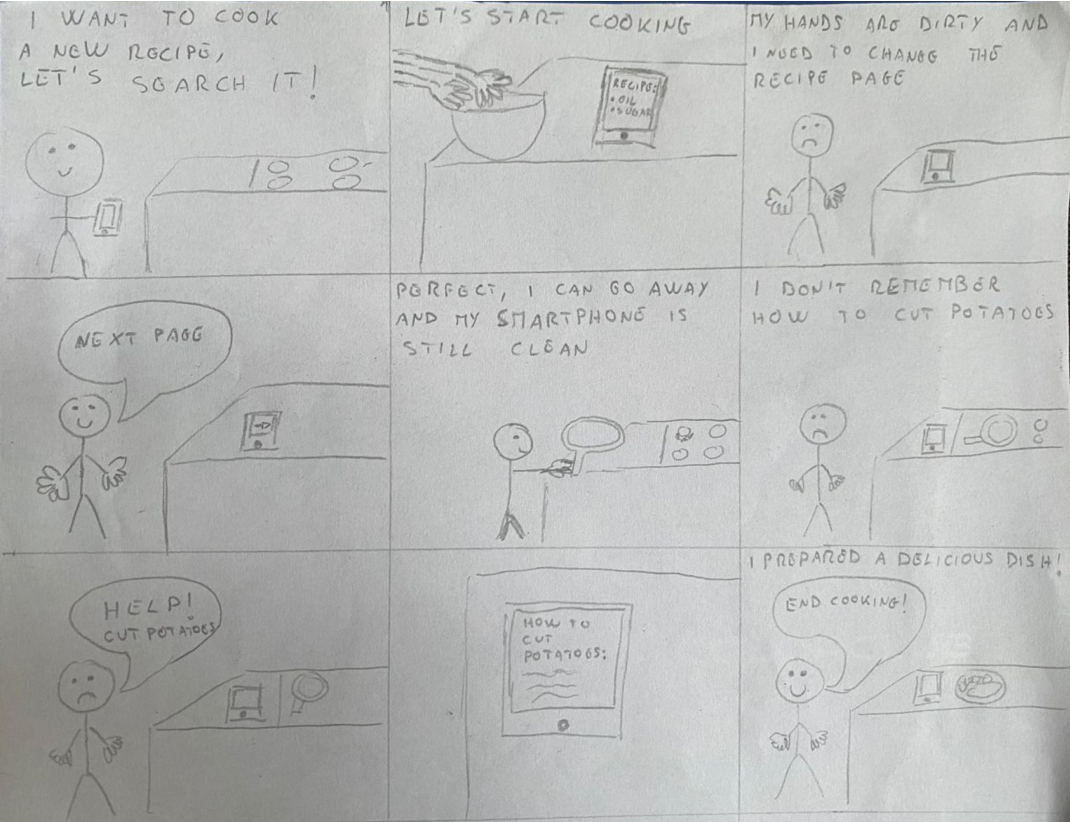 I WANT TO COOK
A NEW RECIPE,
LET'S SEARCH IT!
LET'S START COOKING
RECIPE:
• OIL
• SUGAR
MY HANDS ARE DIRTY AND
I NEED TO CHANGE THE
RECIPE PAGE
NEXT PAGE
PERFECT, I CAN GO AWAY
AND MY SMARTPHONE IS
STILL CLEAN
I DON'T REMEMBER
HOW TO CUT POTATOES
HELP!
CUT POTATOES
HOW TO
CUT
POTATOES:
I PREPARED A DELICIOUS DISH!
END COOKING!